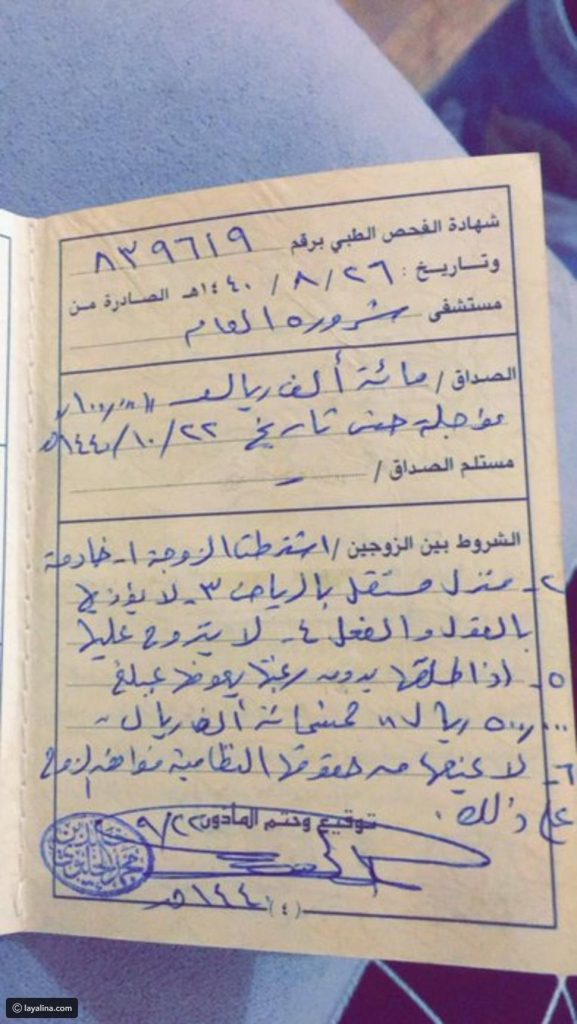 شهادة الفحص الطبي برقم ٨٣٩٦١٩
وتاريخ : ٢٦ / ٨ / ١٤٤٠هـ الصادرة من
مستشفى شروره العام
الصداق / مائة ألف ريال ١٠٠,٠٠٠
مؤجلة حتى تاريخ ٢٢ / ١٠ / ١٤٤٠هـ
مستلم الصداق / -
الشروط بين الزوجين / اشترطت الزوجة ١- خادمة
٢- منزل مستقل بالرياض ٣- لا يؤذيها
بالقول والفعل ٤- لا يتزوج عليها
٥- اذا طلقها بدون رغبتها يعوضها بمبلغ
٥٠٠,٠٠٠ ريال خمسمائة ألف ريال
٦- لا يمنعها من حقوقها النظامية فوافق الزوج
على ذلك .
توقيع وختم المأذون ٩/٢٢
١٤٤٠هـ
(٤)
© layalina.com